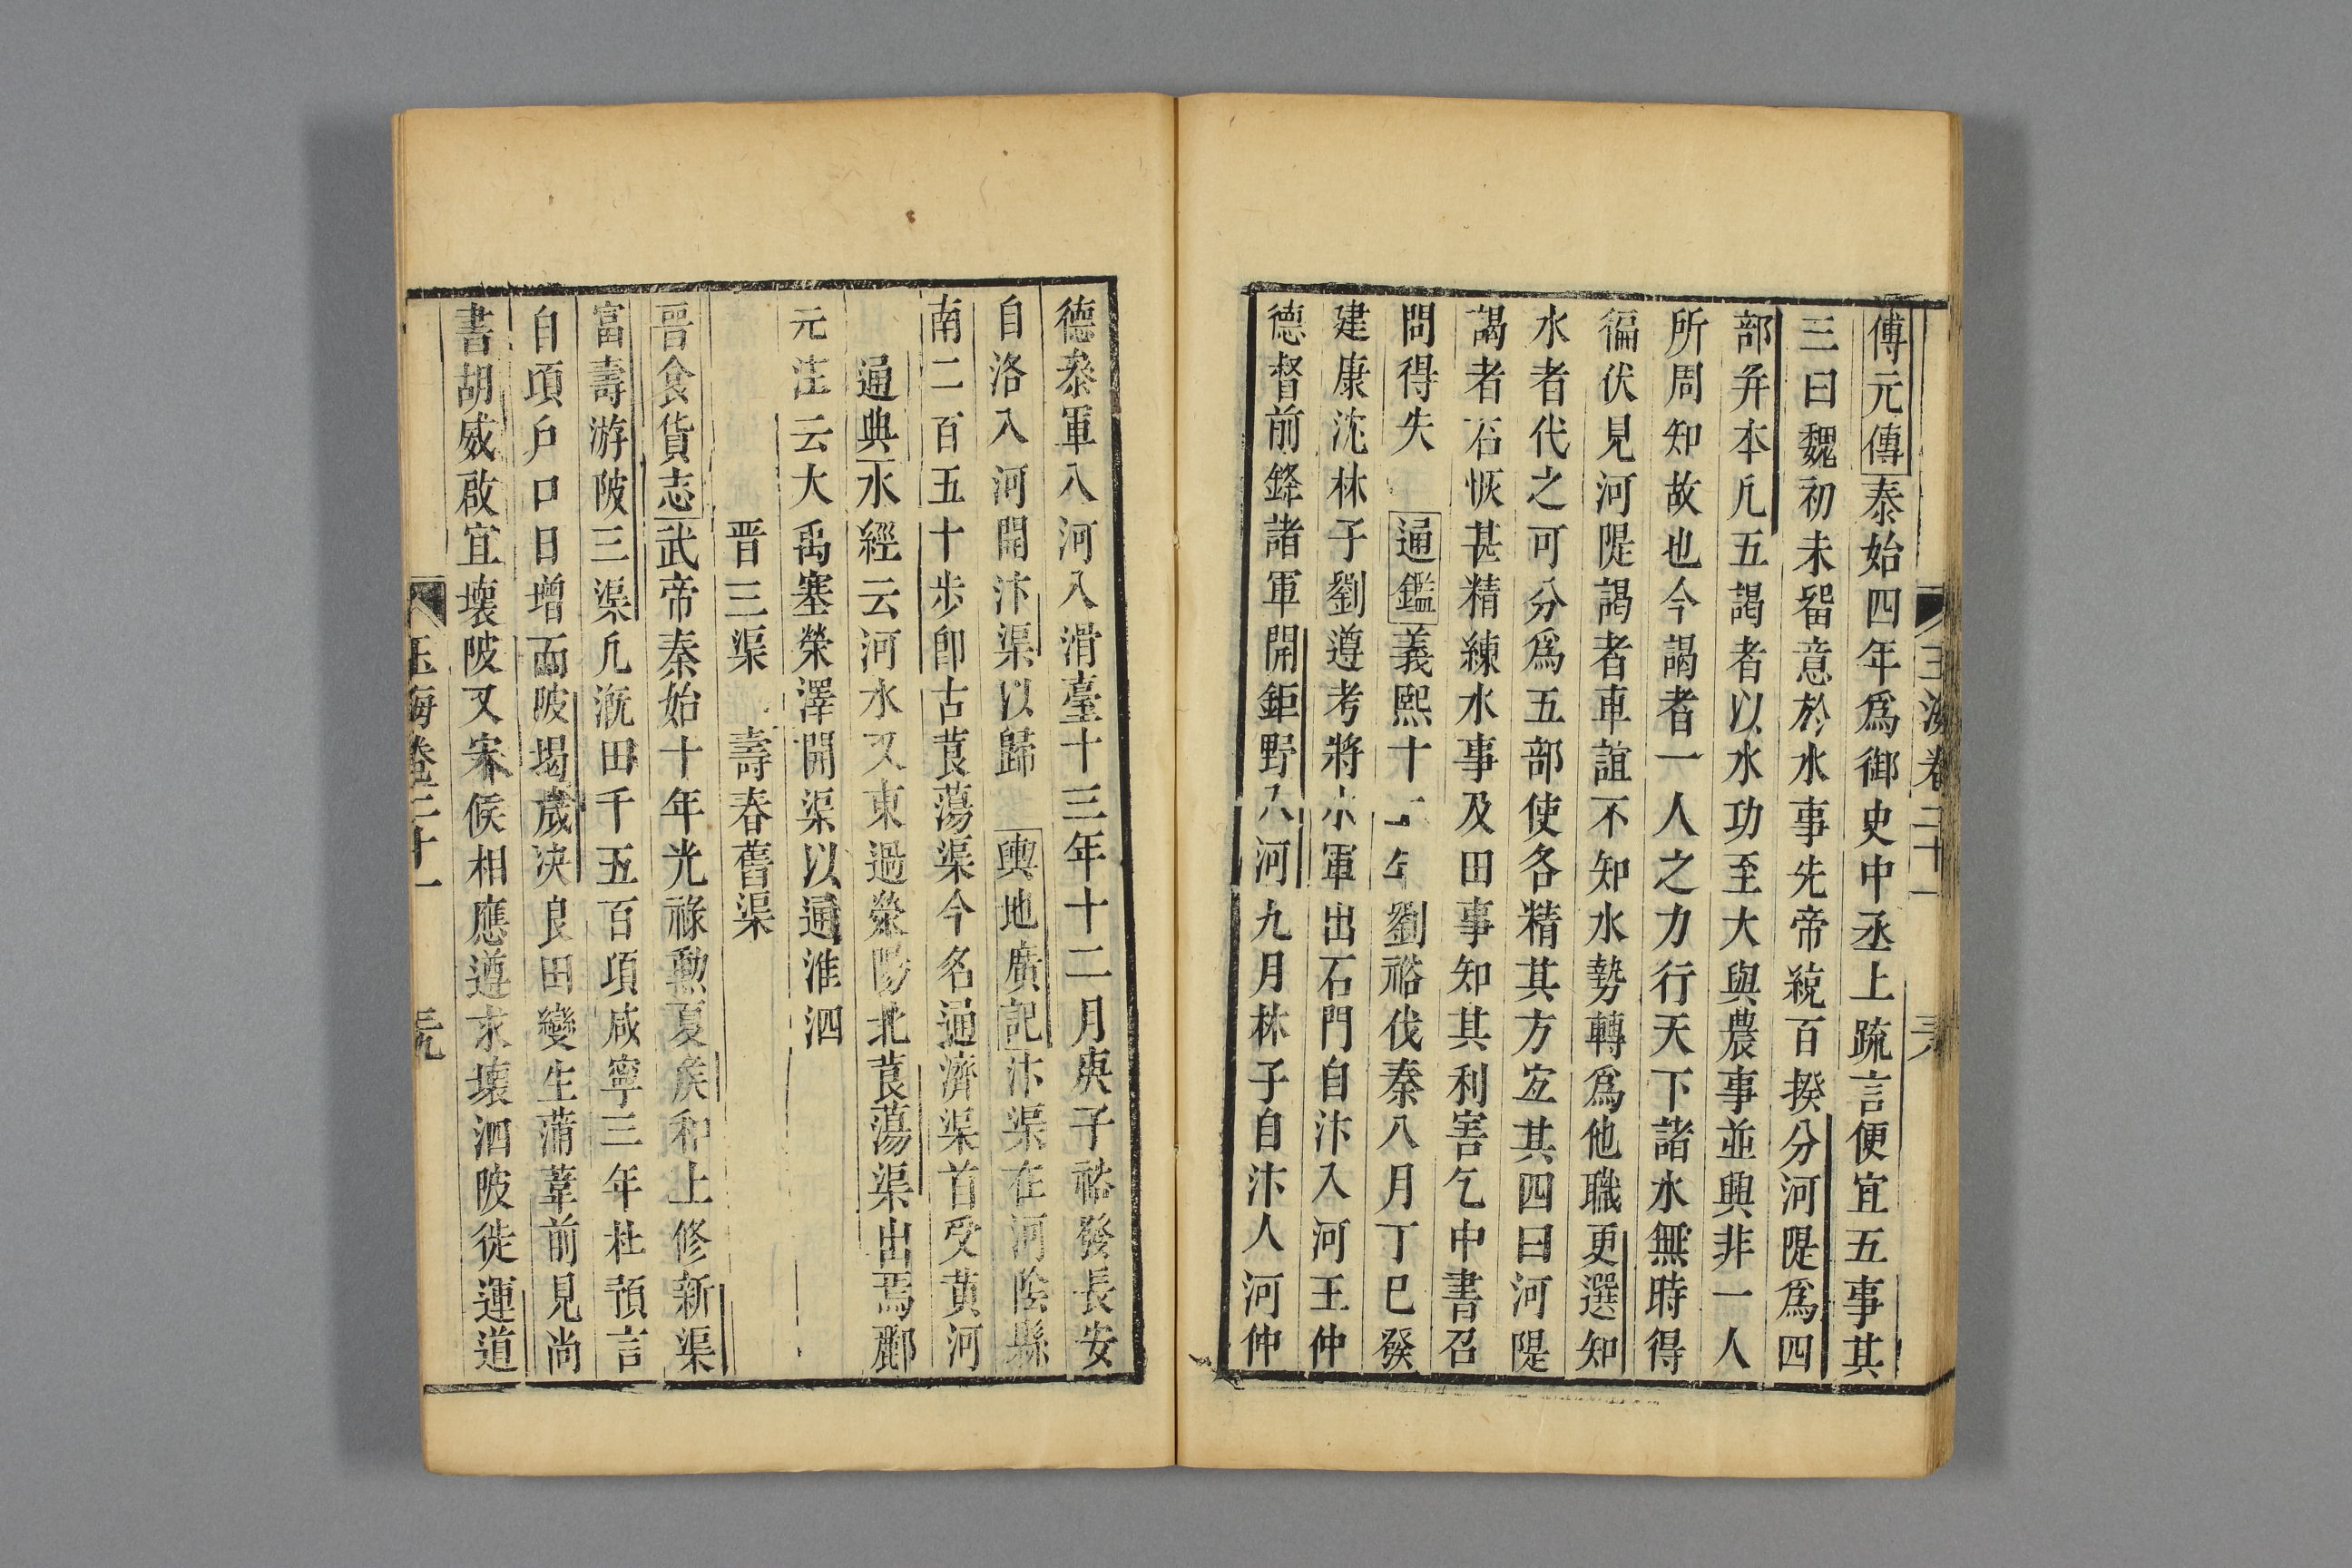 傅元傳泰始四年爲御史中丞上疏言便宜五事其
三曰魏初未留意於水事先帝統百揆分河隄爲四
部并本凡五謁者以水功至大與農事並興非一人
所周知故也今謁者一人之力行天下諸水無時得
徧伏見河隄謁者車誼不知水勢轉爲他職更選知
水者代之可分爲五部使各精其方宜其四曰河隄
謁者石恢甚精練水事及田事知其利害乞中書召
問得失 通鑑義熙十二年劉裕伐秦八月丁巳發
建康沈林子劉遵考將水軍出石門自汴入河王仲
德督前鋒諸軍開鉅野入河九月林子自汴入河仲
德泰軍入河入滑臺十三年十二月庚子裕發長安
自洛入河開汴渠以歸 輿地廣記汴渠在河陰縣
南二百五十步卽古莨蕩渠今名通濟渠首受黃河
通典水經云河水又東過滎陽北莨蕩渠出焉酈
元注云大禹塞滎澤開渠以通淮泗
晋三渠 壽春舊渠
晋食貨志武帝泰始十年光祿勳夏矦和上修新渠
富壽游陂三渠凡漑田千五百項咸寧三年杜預言
自項戶口日增而陂堨歲决良田變生蒲葦前見尚
書胡威啟宜壞陂又宋候相應遵求壞泗陂徙運道
玉海卷二十一